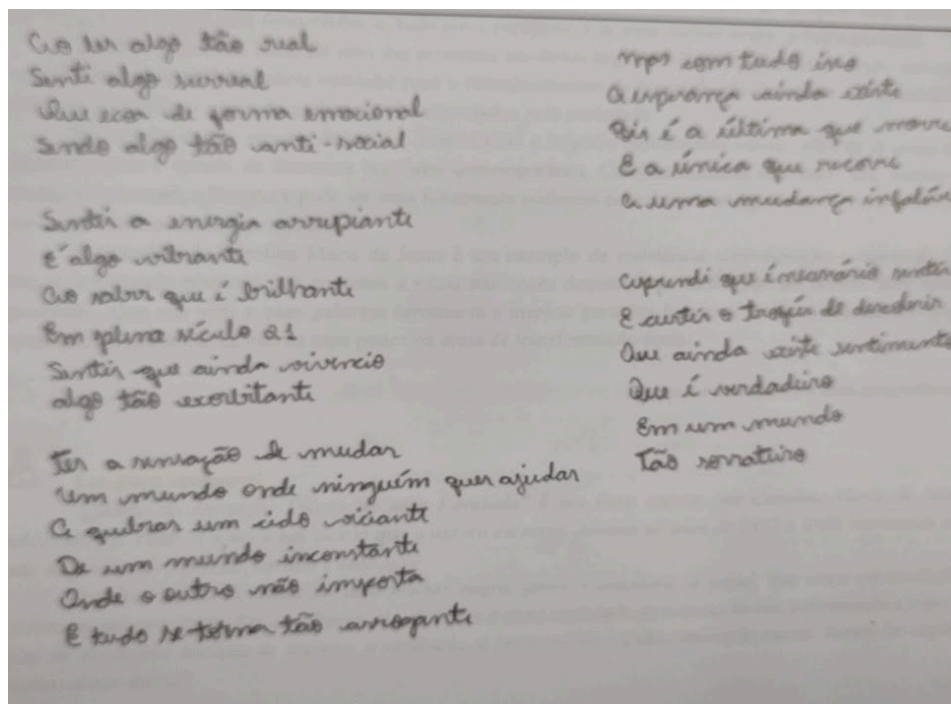 Ao ler algo tão real
Senti algo surreal
Que ecoa de forma emocional
Sendo algo tão anti-social
Sentir a energia arrupiante
É algo vibrante
Ao saber que é brilhante
Em plena século 21
Sentir que ainda vivencio
algo tão exorbitante
Ter a sensação de mudar
Um mundo onde ninguém quer ajudar
A quebrar um ciclo viciante
De um mundo inconstante
Onde o outro não importa
E tudo se torna tão arrogante
Mas com tudo isso
A esperança ainda existe
Pois é a última que morre
E a única que recorre
A uma mudança
Aprendi que é necessário sentir
E curtir o de descobrir
Que ainda existe sentimento
Que é verdadeiro
Em um mundo
Tão sorrateiro